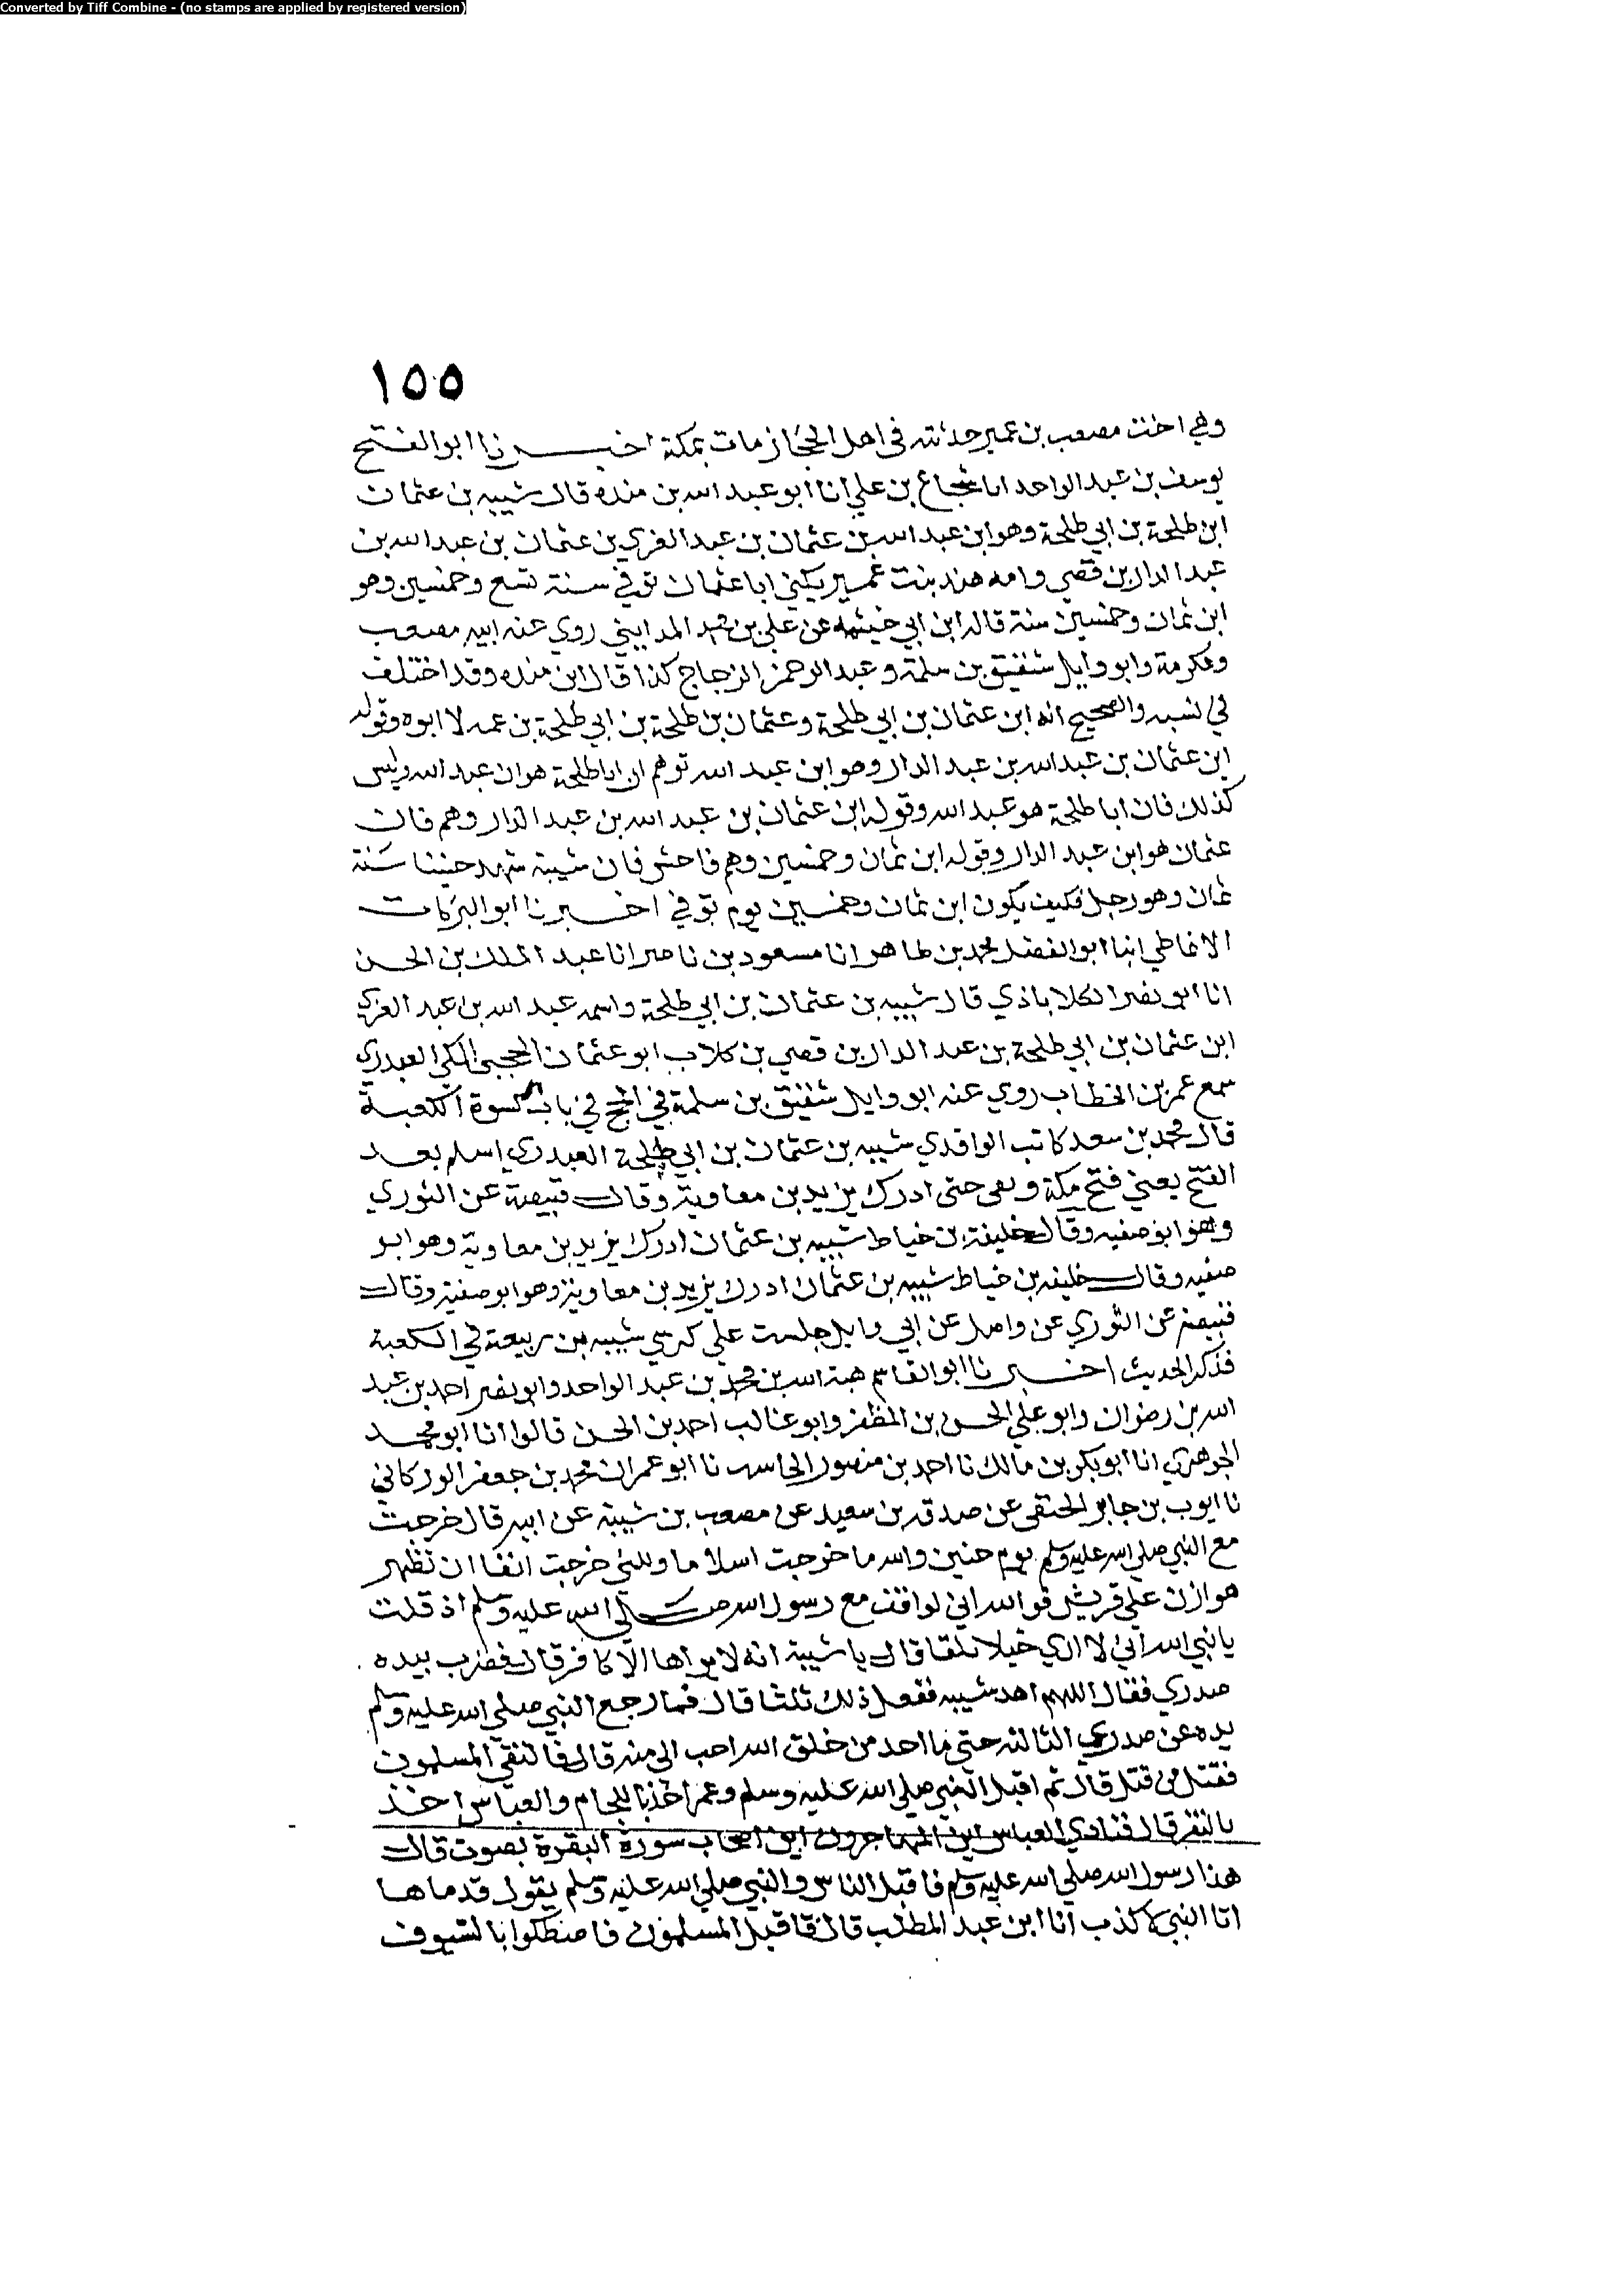 Converted by Tiff Combine - (no stamps are applied by registered version)
١٥٥
وهي اخت مصعب بن عمير حديثه في اهل الحجاز مات بمكة اخبرنا ابو الفتح
يوسف بن عبد الواحد انا شجاع بن علي انا ابو عبد الله بن منده قال شيبه بن عثمان
ابن طلحة بن ابي طلحة وهو ابن عبد الله بن عثمان بن عبد العزي بن عثمان بن عبد الله بن
عبد الدار بن قصي وامه هند بنت عمير يكني ابا عثمان توفي سنة تسع وخمسين وهو
ابن ثمان وخمسين سنة قاله ابن ابي خيثمه عن علي بن محمد المدايني روي عنه ابيه مصعب
وعكرمة وابو وايل شقيق بن سلمة وعبد الرحمن الزجاج كذا قال ابن منده وقد اختلف
في نسبه والصحيح انه ابن عثمان بن ابي طلحة وعثمان بن طلحة بن ابي طلحة بن عمه لا ابوه وقوله
ابن عثمان بن عبد الله بن عبد الدار وهو ابن عبد الله توهم ان ابا طلحة هو ان عبد الله وليس
كذلك فان ابا طلحة هو عبد الله وقوله ابن عثمان بن عبد الله بن عبد الدار وهم فان
عثمان هو ابن عبد الدار وقوله ابن ثمان وخمسين وهم فاحش فان شيبة شهد حنينا سنة
ثمان وهو رجل فكيف يكون ابن ثمان وخمسين يوم توفي اخبرنا ابو البركات
الانماطي انبا ابو الفضل محمد بن طاهر انا مسعود بن ناصر انا عبد الملك بن الحسن
انا ابو نصر الكلاباذي قال شيبه بن عثمان بن ابي طلحة واسمه عبد الله بن عبد العزي
ابن عثمان بن ابي طلحة بن عبد الدار بن قصي بن كلاب ابو عثمان الحجبي المكي العبدري
سمع عمر بن الخطاب روي عنه ابو وايل شقيق بن سلمة في الحج في باب كسوة الكعبة
قال محمد بن سعد كاتب الواقدي شيبه بن عثمان بن ابي طلحة العبدري اسلم بعد
الفتح يعني فتح مكة وبقي حتى ادرك يزيد بن معاوية وقال قبيصة عن الثوري
وهو ابو صفيه وقال خليفة بن خياط شيبه بن عثمان ادرك يزيد بن معاوية وهو ابو
صفيه وقال خليفه بن خياط شيبه بن عثمان ادرك يزيد بن معاوية وهو ابو صفية وقال
قبيصة عن الثوري عن واصل عن ابي وايل جلست علي كرسي شيبه بن ربيعة في الكعبة
فذكر الحديث اخبرنا ابو القاسم هبة الله بن محمد بن عبد الواحد وابو نصر احمد بن عبد
الله بن رضوان وابو علي الحسن بن المظفر وابو غالب احمد بن الحسن قالوا انا ابو محمد
الجوهري انا ابو بكر بن مالك نا احمد بن منصور الحاسب نا ابو عمران محمد بن جعفر الوركاني
نا ايوب بن جابر الحنفي عن صدقه بن سعيد عن مصعب بن شيبة عن ابيه قال خرجت
مع النبي صلي الله عليه وسلم يوم حنين والله ما خرجت اسلاما ولكني خرجت انفا ان تظهر
هوازن علي قريش فو الله اني لواقف مع رسول الله صلي الله عليه وسلم اذ قلت
يا نبي الله اني لا اري خيلا بلقا قال يا شيبة انه لا يراها الا كافر قال فضرب بيده
صدري فقال اللهم اهد شيبه ففعل ذلك ثلثا قال فما رجع النبي صلي الله عليه وسلم
يده عن صدري الثالثه حتى ما احد من خلق الله احب الى منه قال فالتقي المسلمون
فقتل من قتل قال ثم اقبل النبي صلي الله عليه وسلم وعمر اخذ باللجام والعباس اخذ
بالثفر قال فنادي العباس اين المهاجرون اين اصحاب سورة البقرة بصوت قال
هذا رسول الله صلي الله عليه وسلم فاقبل الناس والنبي صلي الله عليه وسلم يقول قدماها
انا النبي لا كذب انا ابن عبد المطلب قال فاقبل المسلمون فاصطكوا بالسيوف